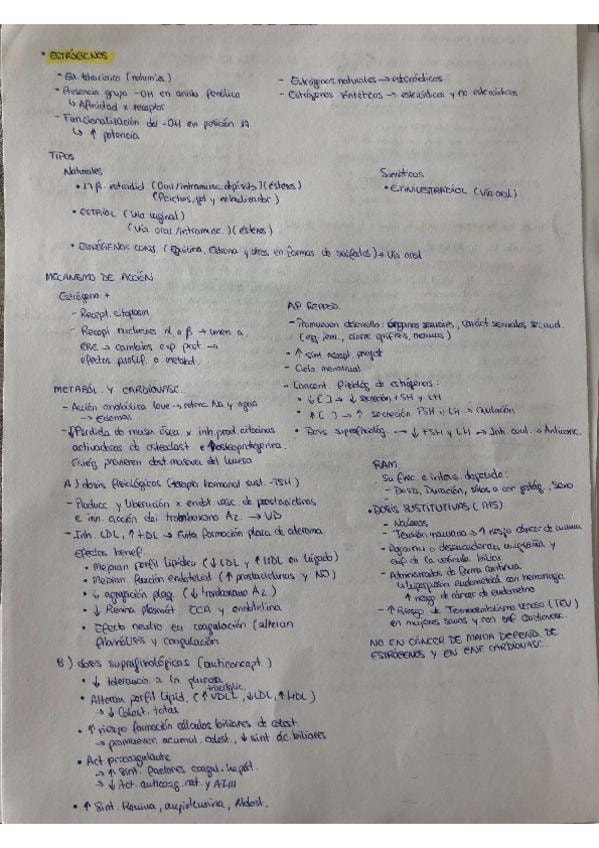 • ESTRÓGENOS
- Est. tetracíclica (naturales)
- Presencia grupo -OH en anillo fenólico
↳ Afinidad x receptor
- Funcionalización del -OH en posición 17
↳ ↑ potencia
- Estrógenos naturales → esteroídicos
- Estrógenos sintéticos → esteroídicos y no esteroídicos
TIPOS
Naturales
• 17 β-estradiol (Oral/intramusc. depósito) (ésteres)
(Parches, gel y nebulizador)
• ESTRIOL (Vía vaginal)
(Vía oral/intramusc.) (ésteres)
• ESTRÓGENOS CONJ. (Equilina, Estrona y otros en formas de sulfatos) → Vía oral
Sintéticos
• ETINILESTRADIOL (Vía oral)
MECANISMO DE ACCIÓN
Estrógeno +
- Recept. citoplasm
- Recept nucleares α o β → unen a
ERE → cambios exp. prot. →
efectos prolif. o metabol.
AP. REPROD.
- Promueven desarrollo: órganos sexuales, caráct sexuales secund.
- ↑ sint recept. progest
- Ciclo menstrual
- Concent. fisiológ de estrógenos:
• ↓ [ ] → ↓ secreción FSH y LH
• ↑ [ ] → ↑ secreción FSH y LH → Ovulación
• Dosis suprafisiológ. → ↓ FSH y LH → Inh. ovul. → Anticonc.
METABÓL. Y CARDIOVASC.
- Acción anabólica leve → retenc. Na y agua
→ Edemas
- ↓ Pérdida de masa ósea x inh. prod. citocinas
activadoras de osteoclast e ↑ osteoprotegerina.
previenen dest masiva del hueso
A) dosis fisiológicas (terapia hormonal sust. - TSH)
- Producc. y liberación x endot. vasc. de prostaciclinas
e inh. acción del tromboxano A2. → VD
- Inh. LDL, ↑ HDL → Evita formación placa de ateroma
Efectos benef.
• Mejoran perfil lipídico (↓ LDL y ↑ HDL en hígado)
• Mejoran función endotelial (↑ prostaciclinas y NO)
• ↓ agregación plaq. (↓ tromboxano A2)
• ↓ Renina plasmát ECA y endotelina
• Efecto neutro en coagulación (alteran
fibrinólisis y coagulación
B) dosis suprafisiológicas (anticoncept.)
• ↓ tolerancia a la glucosa
• Alteran perfil lipíd. (↑ VLDL, ↓ LDL, ↑ HDL)
→ ↓ Colest. total
• ↑ riesgo formación cálculos biliares de colest.
→ promueven acumul. colest., ↓ sint ác. biliares
• Act procoagulante
→ ↑ Sint. factores coagul. hepát.
→ ↓ Act. anticoag. nat. y ATIII
• ↑ Sint. Renina, angiotensina, Aldost.
RAM
Su frec. e intens. depende:
- Dosis, Duración, Sexo
• DOSIS SUSTITUTIVAS (THS)
- Náuseas
- Tensión mamaria → ↑ riesgo cáncer de mama
- Agravan o desencadenan migraña y
enf. de la vesícula biliar
- Administrados de forma continua
↳ hiperplasia endometrial con hemorragia
↑ riesgo de cáncer de endometrio
- ↑ Riesgo de Tromboembolismo venoso (TEV)
en mujeres sanas y con enf. Cardiovasc.
NO EN CÁNCER DE MAMA DEPEND. DE
ESTRÓGENOS Y EN ENF. CARDIOVASC.